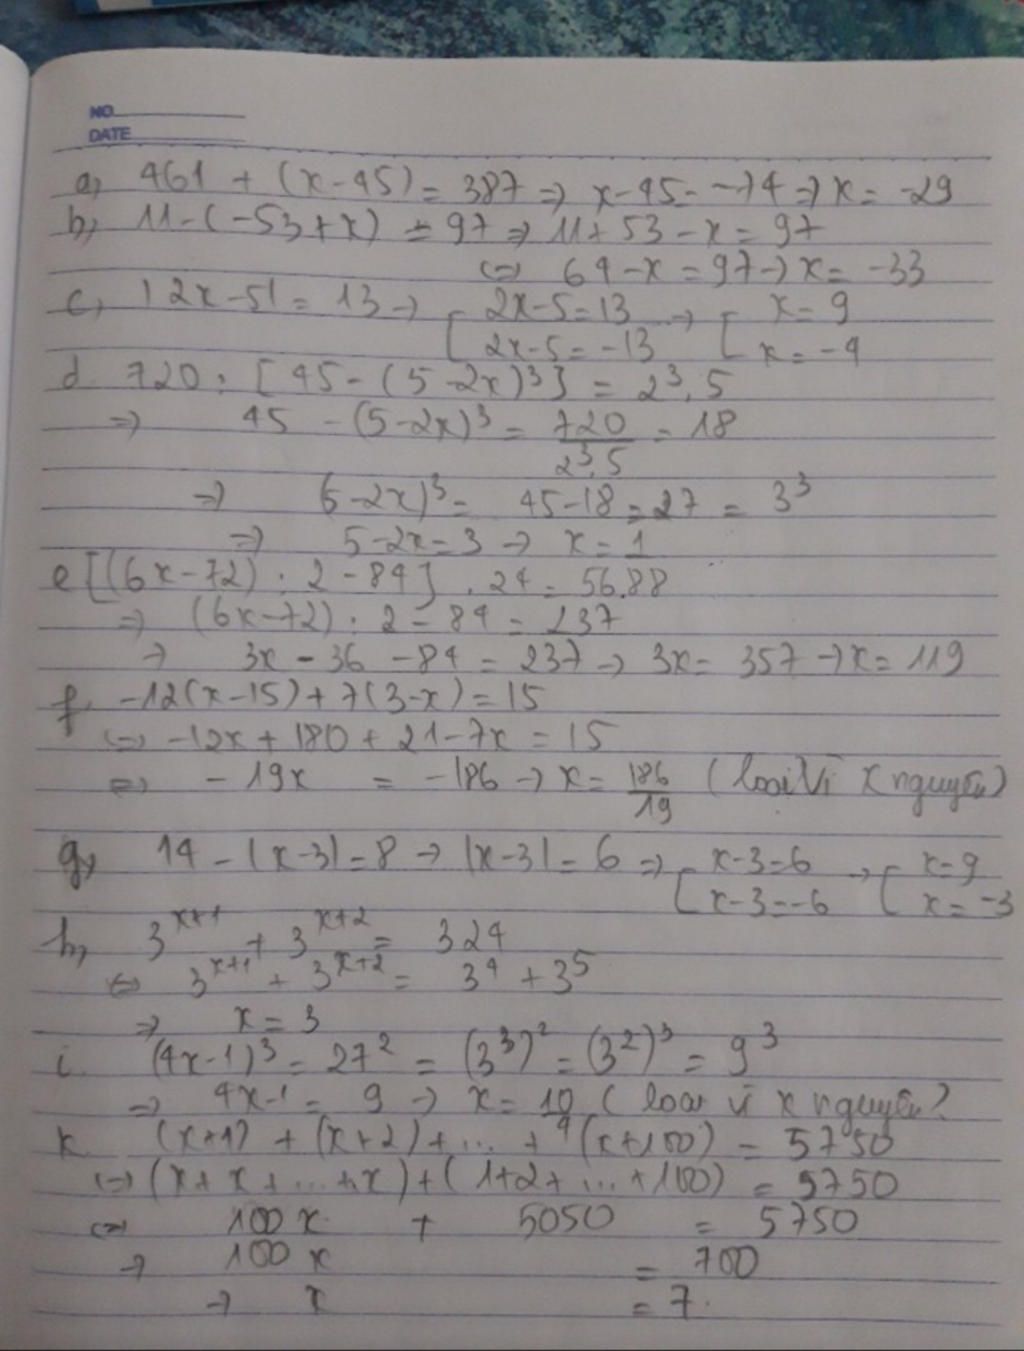 NO
DATE
a, 461 + (x-45) = 387 => x-45 = -74 => x = -29
b, 11-(-53+x) = 97 => 11+53-x = 97
<=> 64-x = 97 -> x = -33
c, |2x-5| = 13 -> [ 2x-5=13 -> [ x=9
2x-5=-13 x=-4
d 720 : [45-(5-2x)³] = 2³.5
=> 45 - (5-2x)³ = 720/2³.5 = 18
=> (5-2x)³ = 45-18 = 27 = 3³
=> 5-2x=3 -> x=1
e [(6x-72) : 2 - 84] . 24 = 56.88
=> (6x-72) : 2 - 84 = 237
-> 3x - 36 - 84 = 237 -> 3x = 357 -> x = 119
f, -12(x-15) + 7(3-x) = 15
<=> -12x + 180 + 21-7x = 15
<=> -19x = -186 -> x = 186/19 (loại vì x nguyên)
g, 14 - |x-3| = 8 -> |x-3| = 6 => [ x-3=6 -> [ x=9
x-3=-6 x=-3
h, 3^{x+1} + 3^{x+2} = 324
<=> 3^{x+1} + 3^{x+2} = 3⁴ + 3⁵
=> x = 3
i. (4x-1)³ = 27² = (3³)² = (3²)³ = 9³
=> 4x-1 = 9 -> x = 10/4 (loại vì x nguyên)
k (x+1) + (x+2) + ... + (x+100) = 5750
<=> (x+x+...+x) + (1+2+...+100) = 5750
<=> 100x + 5050 = 5750
-> 100x = 700
-> x = 7.